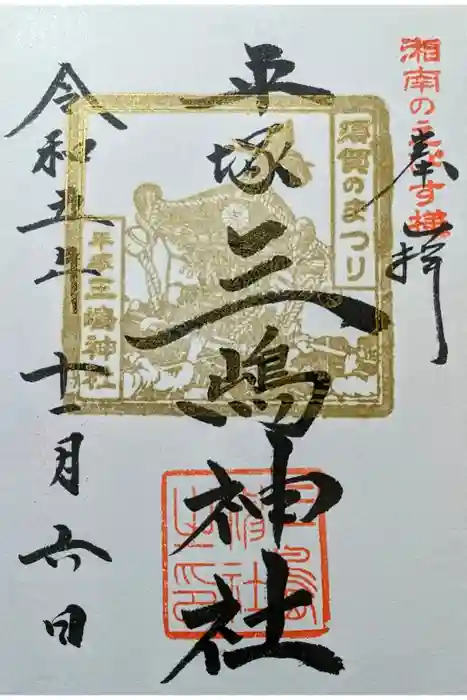 湘南のゑびす様
奉拝
平塚三嶋神社
須賀のまつり
平塚三嶋神社
三嶋神社之印
令和五年
十一月六日